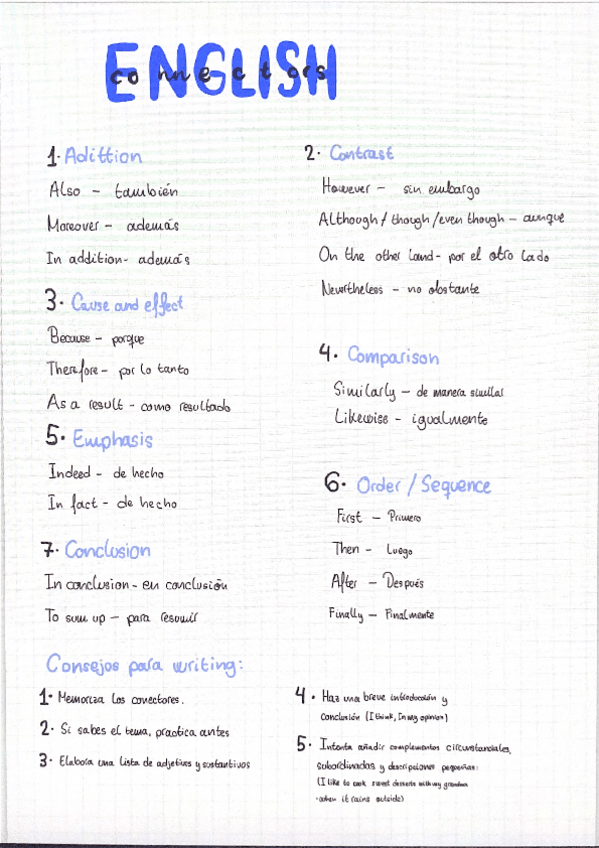 ENGLISH
connectors
1. Adittion
Also – también
Moreover – además
In addition - además
2. Contrast
However – sin embargo
Although / though / even though – aunque
On the other hand - por el otro lado
Nevertheless – no obstante
3. Cause and effect
Because – porque
Therefore – por lo tanto
As a result - como resultado
4. Comparison
Similarly – de manera similar
Likewise – igualmente
5. Emphasis
Indeed - de hecho
In fact - de hecho
6. Order / Sequence
First – Primero
Then – Luego
After – Después
Finally – Finalmente
7. Conclusion
In conclusion - en conclusión
To sum up – para resumir
Consejos para writing:
1. Memoriza los conectores.
2. Si sabes el tema, practica antes
3. Elabora una lista de adjetivos y sustantivos
4. Haz una breve introducción y
conclusión (I think, In my opinion)
5. Intenta añadir complementos circunstanciales,
subordinadas y descripciones pequeñas:
(I like to cook sweet desserts with my grandma
when it rains outside)